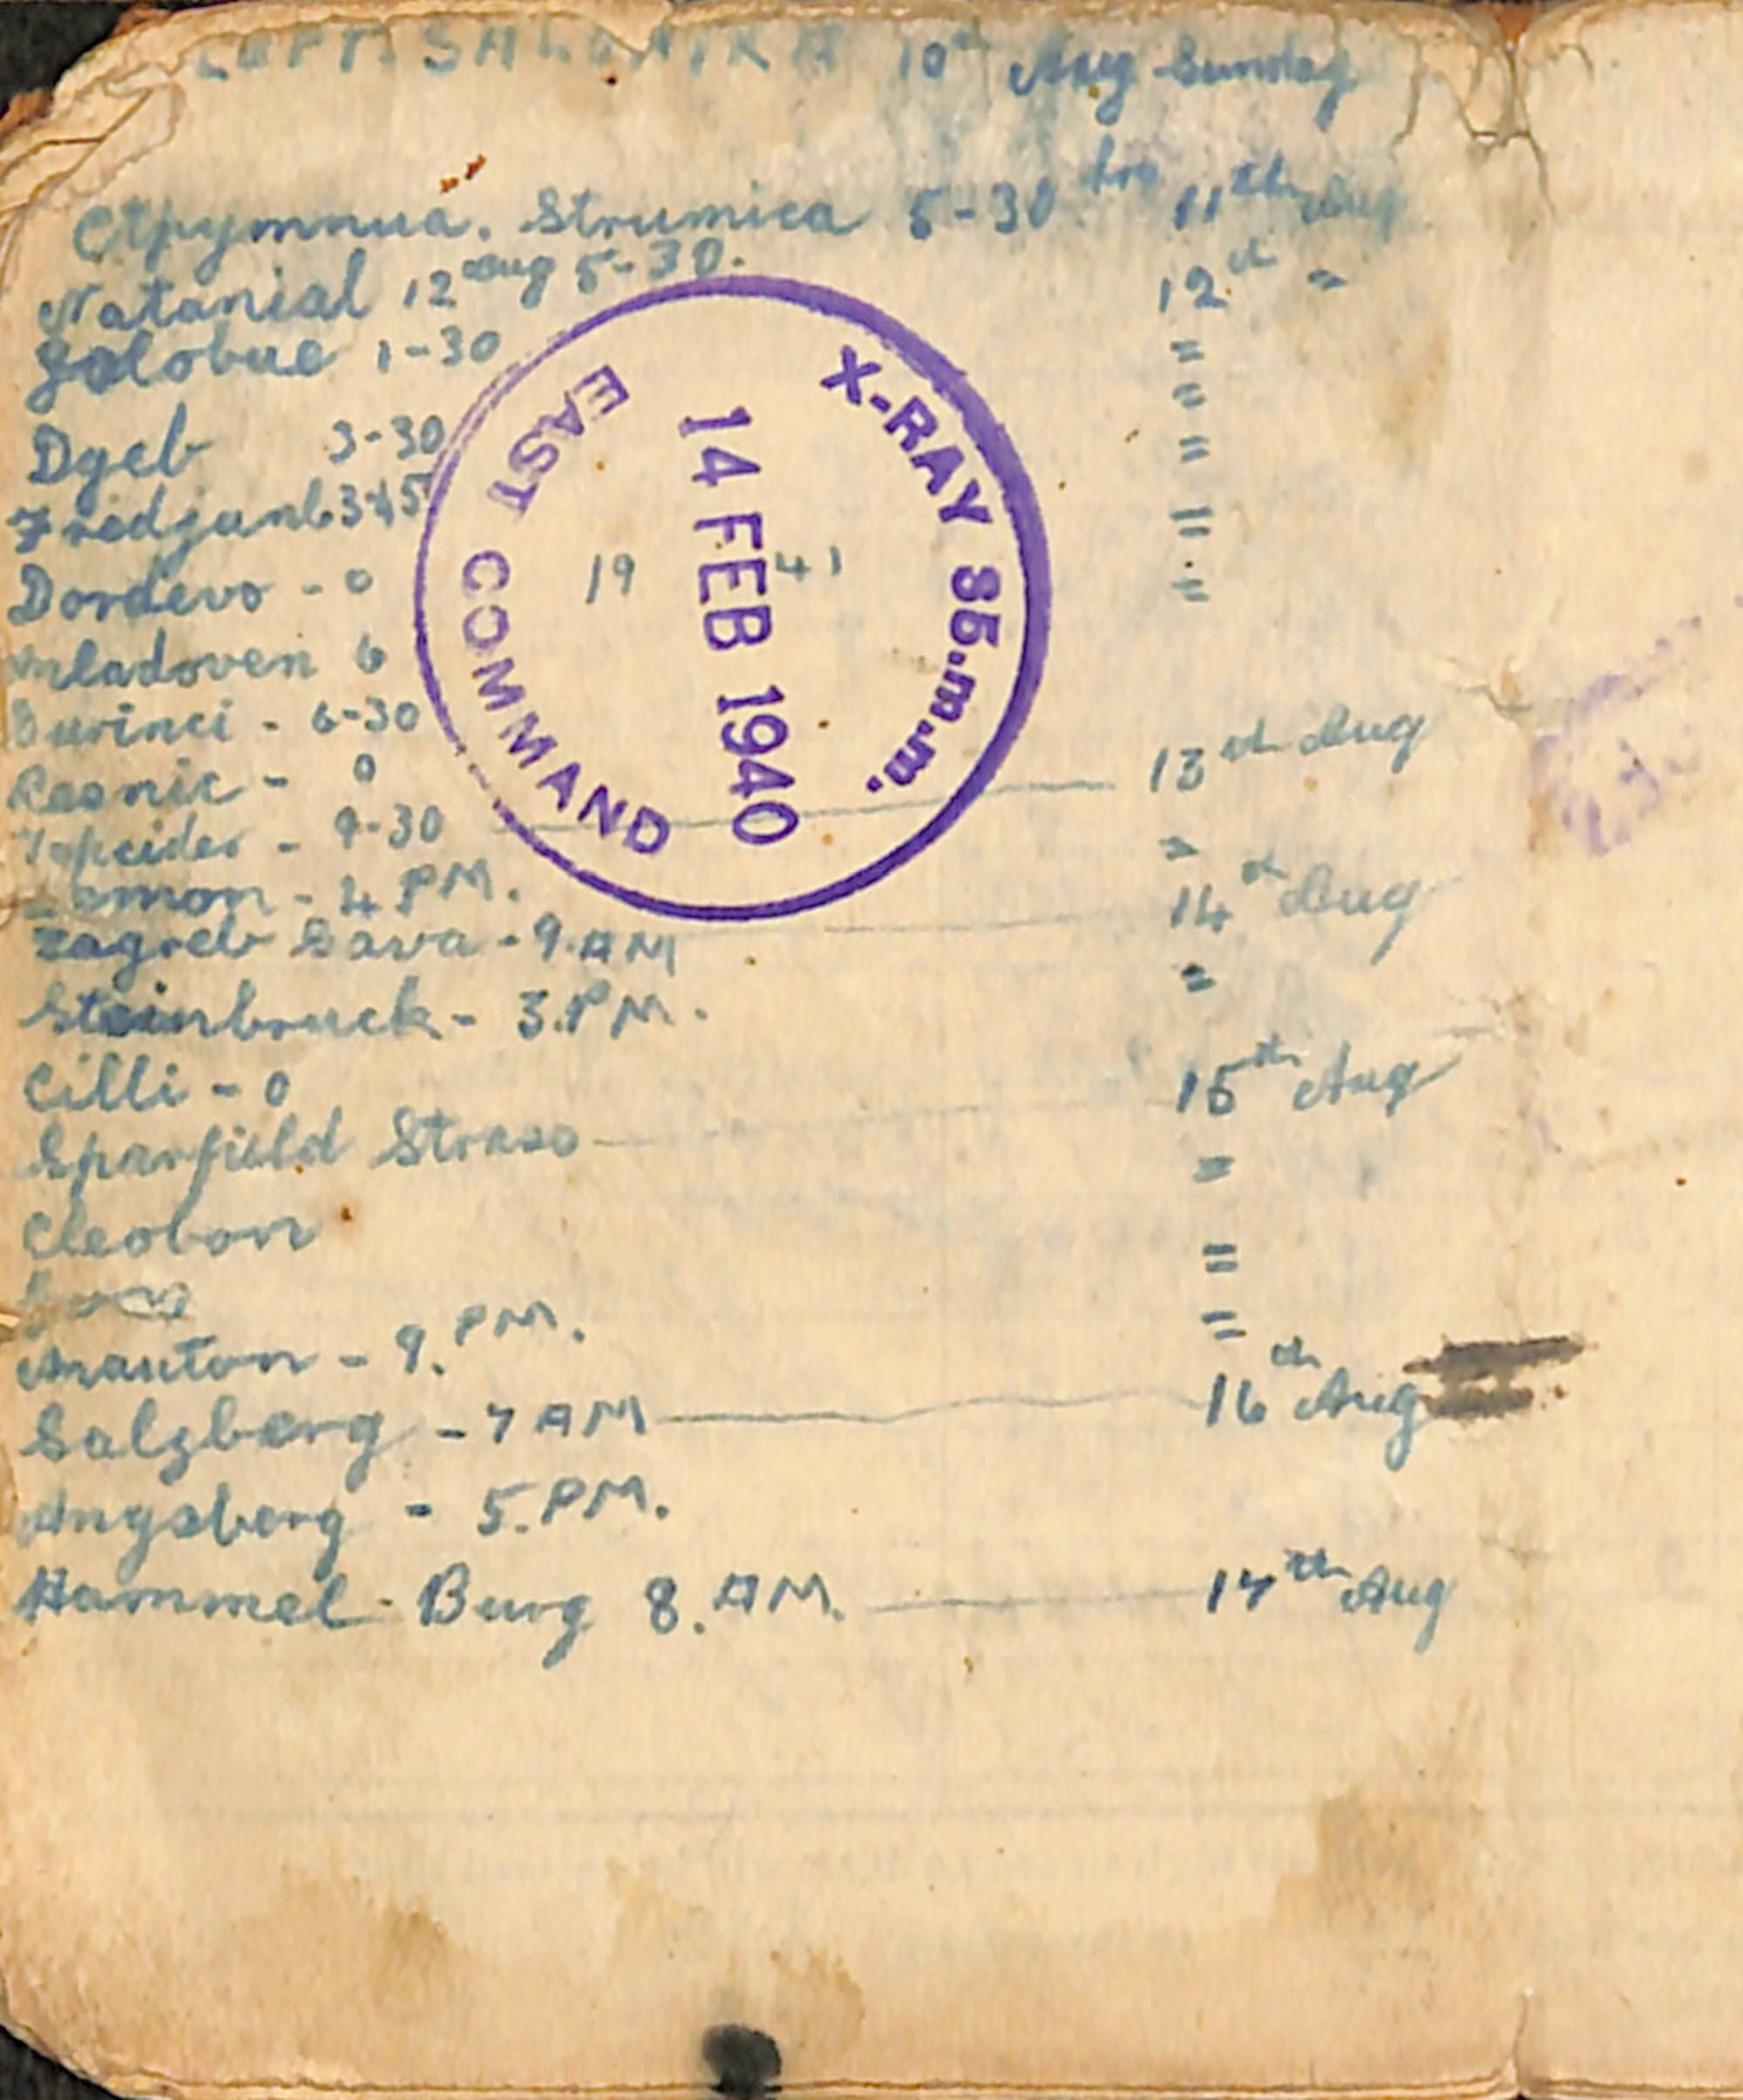 LEFT. SALONIKA 10th Aug Sunday
Ctpymnua. Strumica 5-30 hrs 11th Aug
Natanial 12 Aug 5-30. 12th "
Golobue 1-30 "
"
Dgeb 3-30 "
3.45 "
Dordevo - 0 "
Mladoven 6
6-30
Resnic - 0 13th Aug
Topcider - 9-30 "
4 PM.
Zagreb Sava - 9. AM 14th Aug
Steinbruck - 3. PM. "
Cilli - 0 15th Aug
Sparfield Strass "
Cleobon "
"
9. PM.
Salzberg - 7 AM 16th Aug
Angsberg - 5. PM.
Hammel-Burg 8. AM. 17th Aug
X-RAY 35.m.m.
14 FEB 1940
EAST COMMAND
19 41